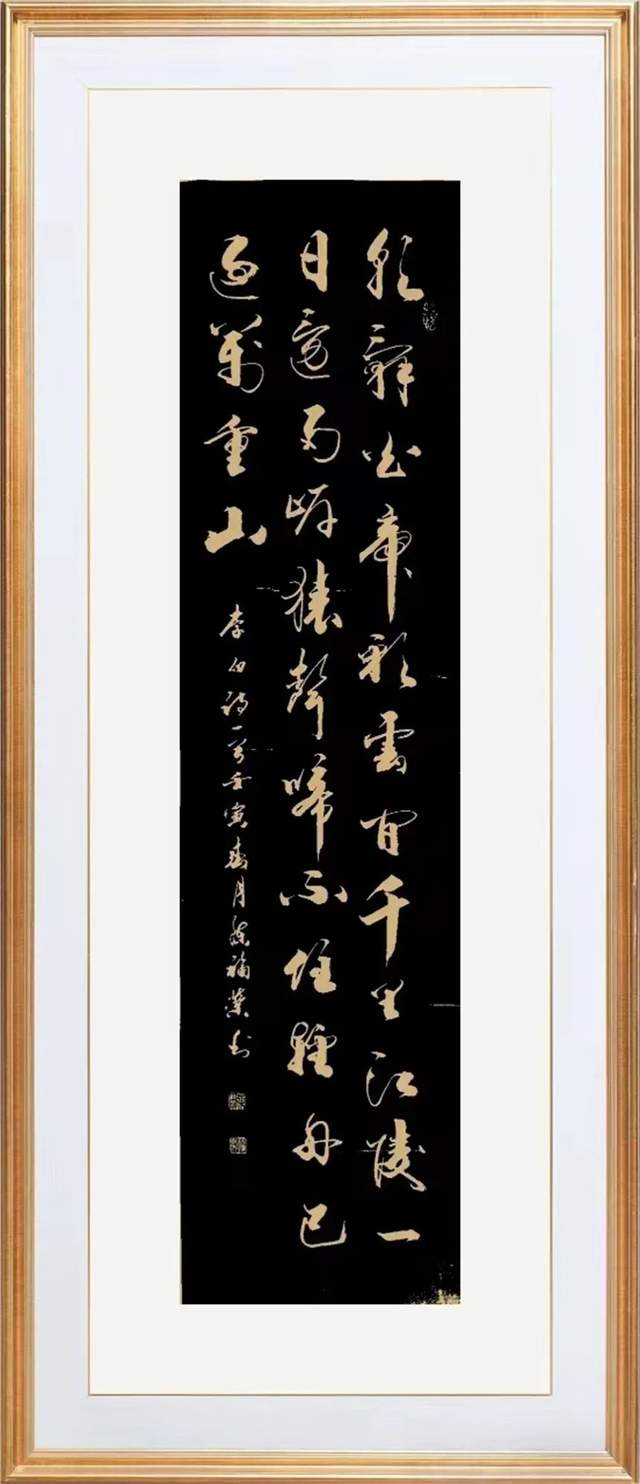 朝辭白帝彩雲間千里江陵一
日還兩岸猿聲啼不住輕舟已
過萬重山
李白詩一首壬寅春月福書